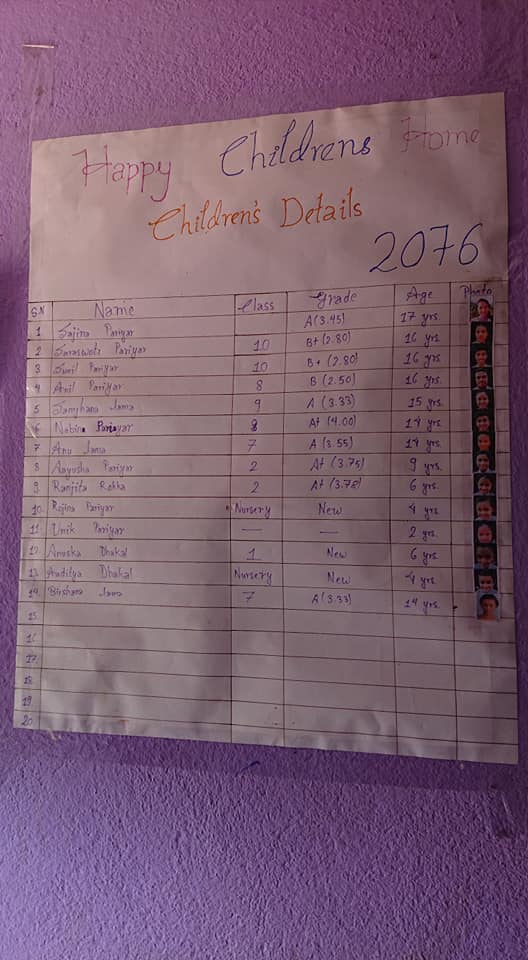 Happy Childrens Home
Children's Details
2076
S.N Name Class Grade Age Photo
1 Sajina Pariyar A (3.45) 17 yrs.
2 Saraswoti Pariyar 10 B+ (2.80) 16 yrs
3 Sunil Pariyar 10 B+ (2.80) 16 yrs
4 Anil Pariyar 8 B (2.50) 16 yrs.
5 Samjhana Lama 9 A (3.33) 15 yrs.
6 Nabina Pariyar 8 A+ (4.00) 14 yrs.
7 Anu Lama 7 A (3.55) 14 yrs.
8 Aayusha Pariyar 2 A+ (3.75) 9 yrs.
9 Ranjita Rokka 2 A+ (3.78) 6 yrs.
10. Rejina Pariyar Nursery New 4 yrs.
11 Unik Pariyar — — 2 yrs.
12 Anuska Dhakal 1 New 6 yrs
13. Aaditya Dhakal Nursery New 4 yrs.
14. Birshana Lama 7 A (3.33) 14 yrs.
15.
16
17.
18
19
20